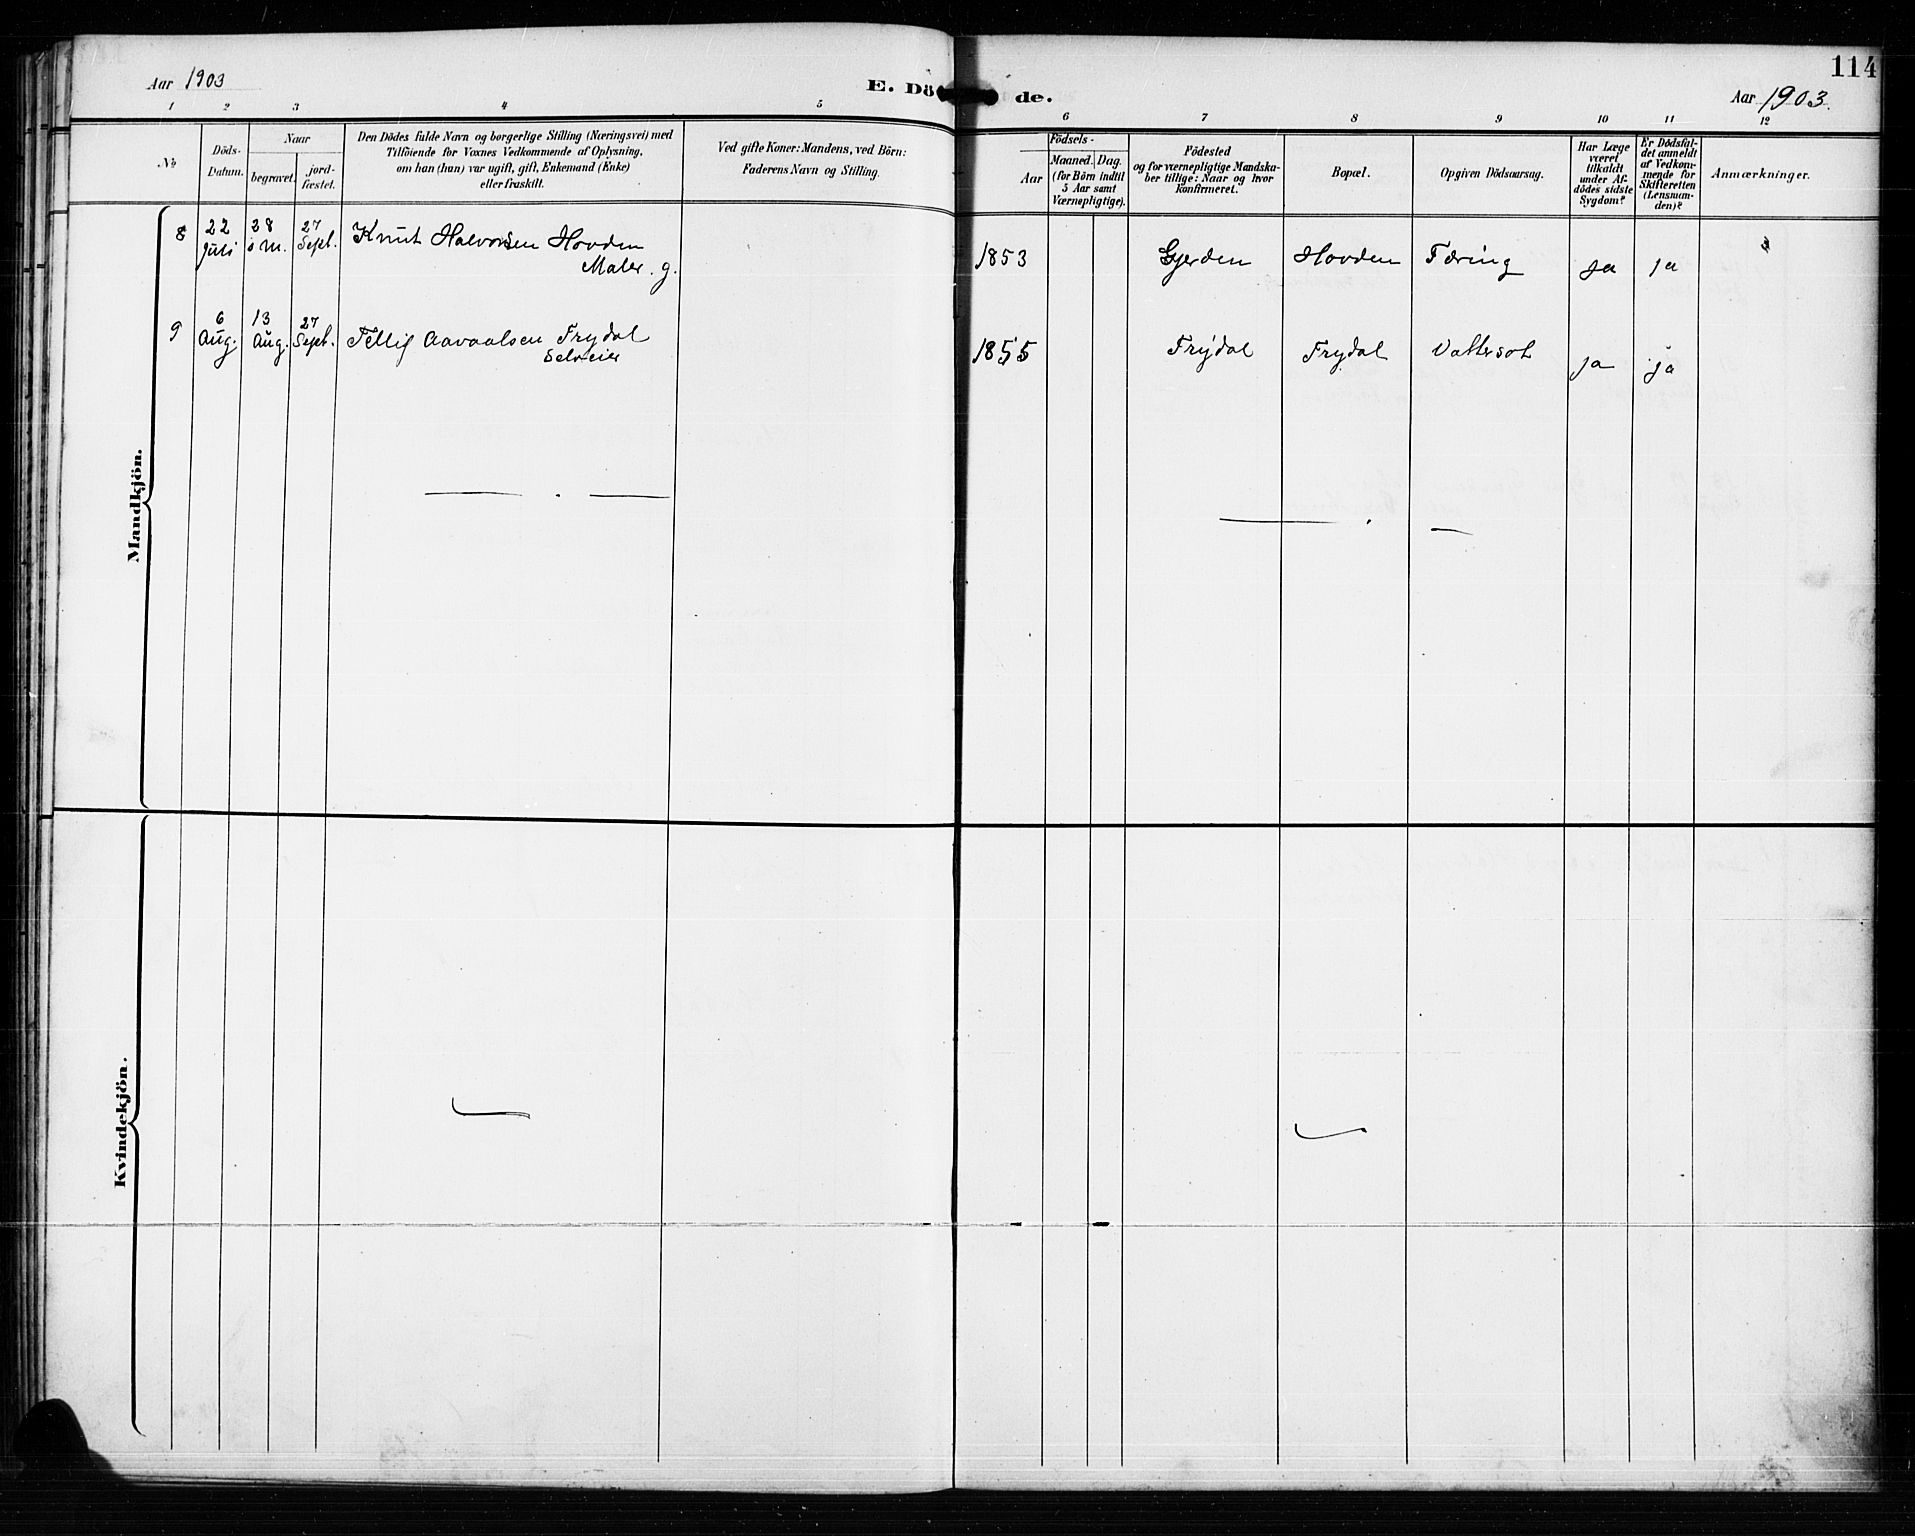 Aar 1903
E. Döde.
114
Aar 1903.
1 2 3 4 5 6 7 8 9 10 11 12
No
Döds-
Datum.
Naar
begravet.
jord-
fæstet.
Den Dödes fulde Navn og borgerlige Stilling (Næringsvei) med
Tilföiende for Voxnes Vedkommende af Oplysning,
om han (hun) var ugift, gift, Enkemand (Enke)
eller fraskilt.
Ved gifte Koner: Mandens, ved Börn:
Faderens Navn og Stilling.
Födsels-
Aar
Maaned. Dag.
(for Börn indtil
5 Aar samt
Værnepligtige).
Födested
og for værnepligtige Mandska-
ber tillige: Naar og hvor
konfirmeret.
Bopæl.
Opgiven Dödsaarsag.
Har Læge
været
tilkaldt
under Af-
dödes sidste
Sygdom?
Er Dödsfal-
det anmeldt
af Vedkom-
mende for
Skifteretten
(Lensman-
den)?
Anmærkninger.
Mandkjön.
8 22 Juli 28 s. M. 27 Sept. Knut Halvorsen Hovden
Maler. g.
1853 Gjerden Hovden Tæring ja ja
9 6 Aug. 13 Aug. 27 Sept. Tellef Aavaalsen Frydal
Selveier
1855 Frydal Frydal Vattersot ja ja
Kvindekjön.